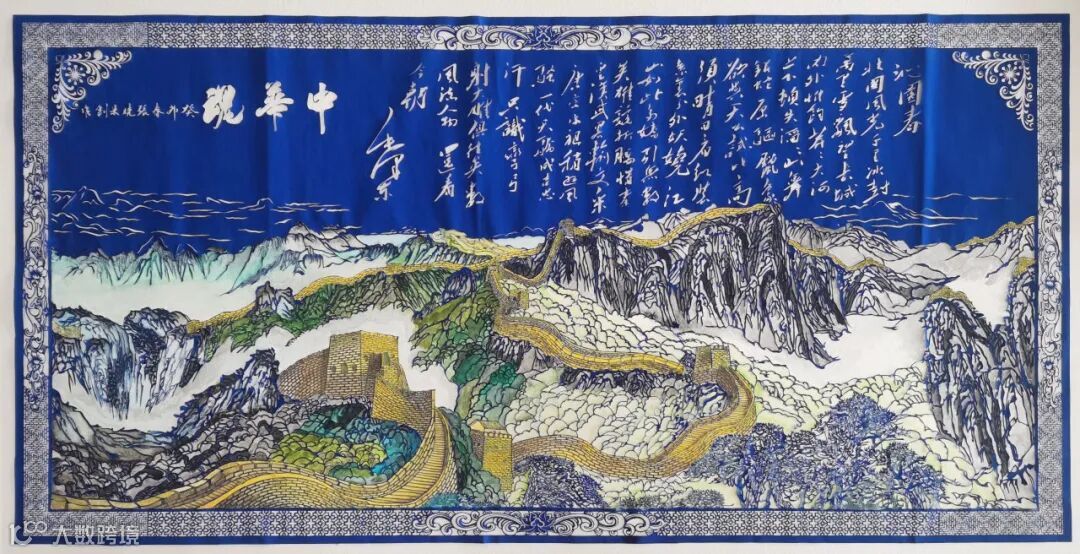 沁園春
北國風光千里冰封
萬里雪飄望長城
内外惟餘莽々大河
上下頓失滔々山舞
銀蛇原驅臘象
欲與天公試比高
須晴日看紅裝
素裹分外妖嬈江
山如此多嬌引無數
英雄競折腰惜秦
皇漢武略輸文采
唐宗宋祖稍遜風
騷一代天驕成吉思
汗只識彎弓
射大雕俱往矣數
風流人物還看
今朝
毛澤東
中華魂
癸卯春張
大数跨境